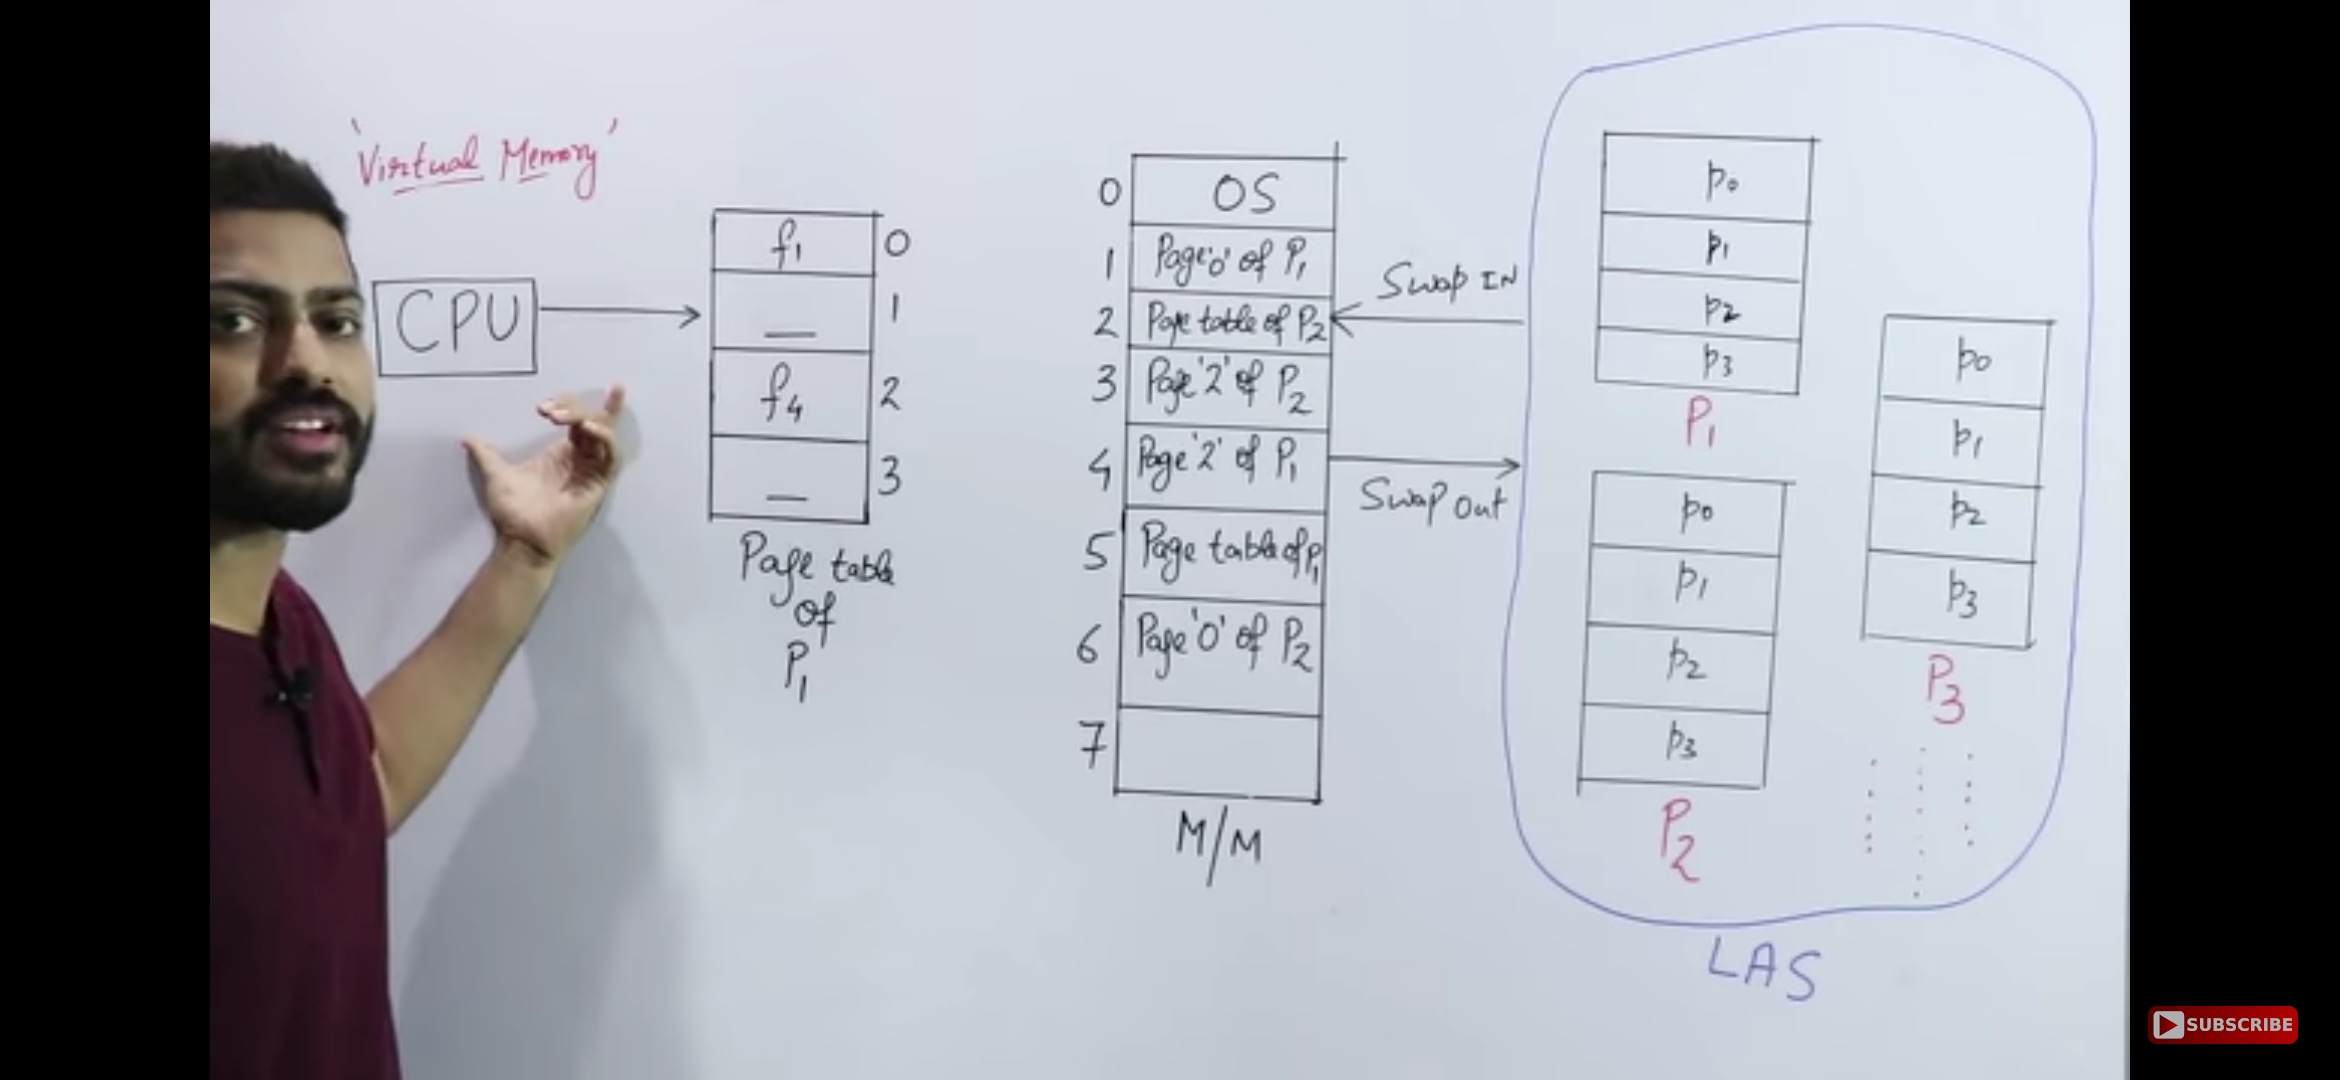 'Virtual Memory'
CPU
f1 0
— 1
f4 2
— 3
Page table
of
P1
0 OS
1 Page '0' of P1
2 Page table of P2
3 Page '2' of P2
4 Page '2' of P1
5 Page table of P1
6 Page '0' of P2
7
M/M
Swap IN
Swap Out
p0
p1
p2
p3
P1
p0
p1
p2
p3
P2
p0
p1
p2
p3
P3
LAS
SUBSCRIBE